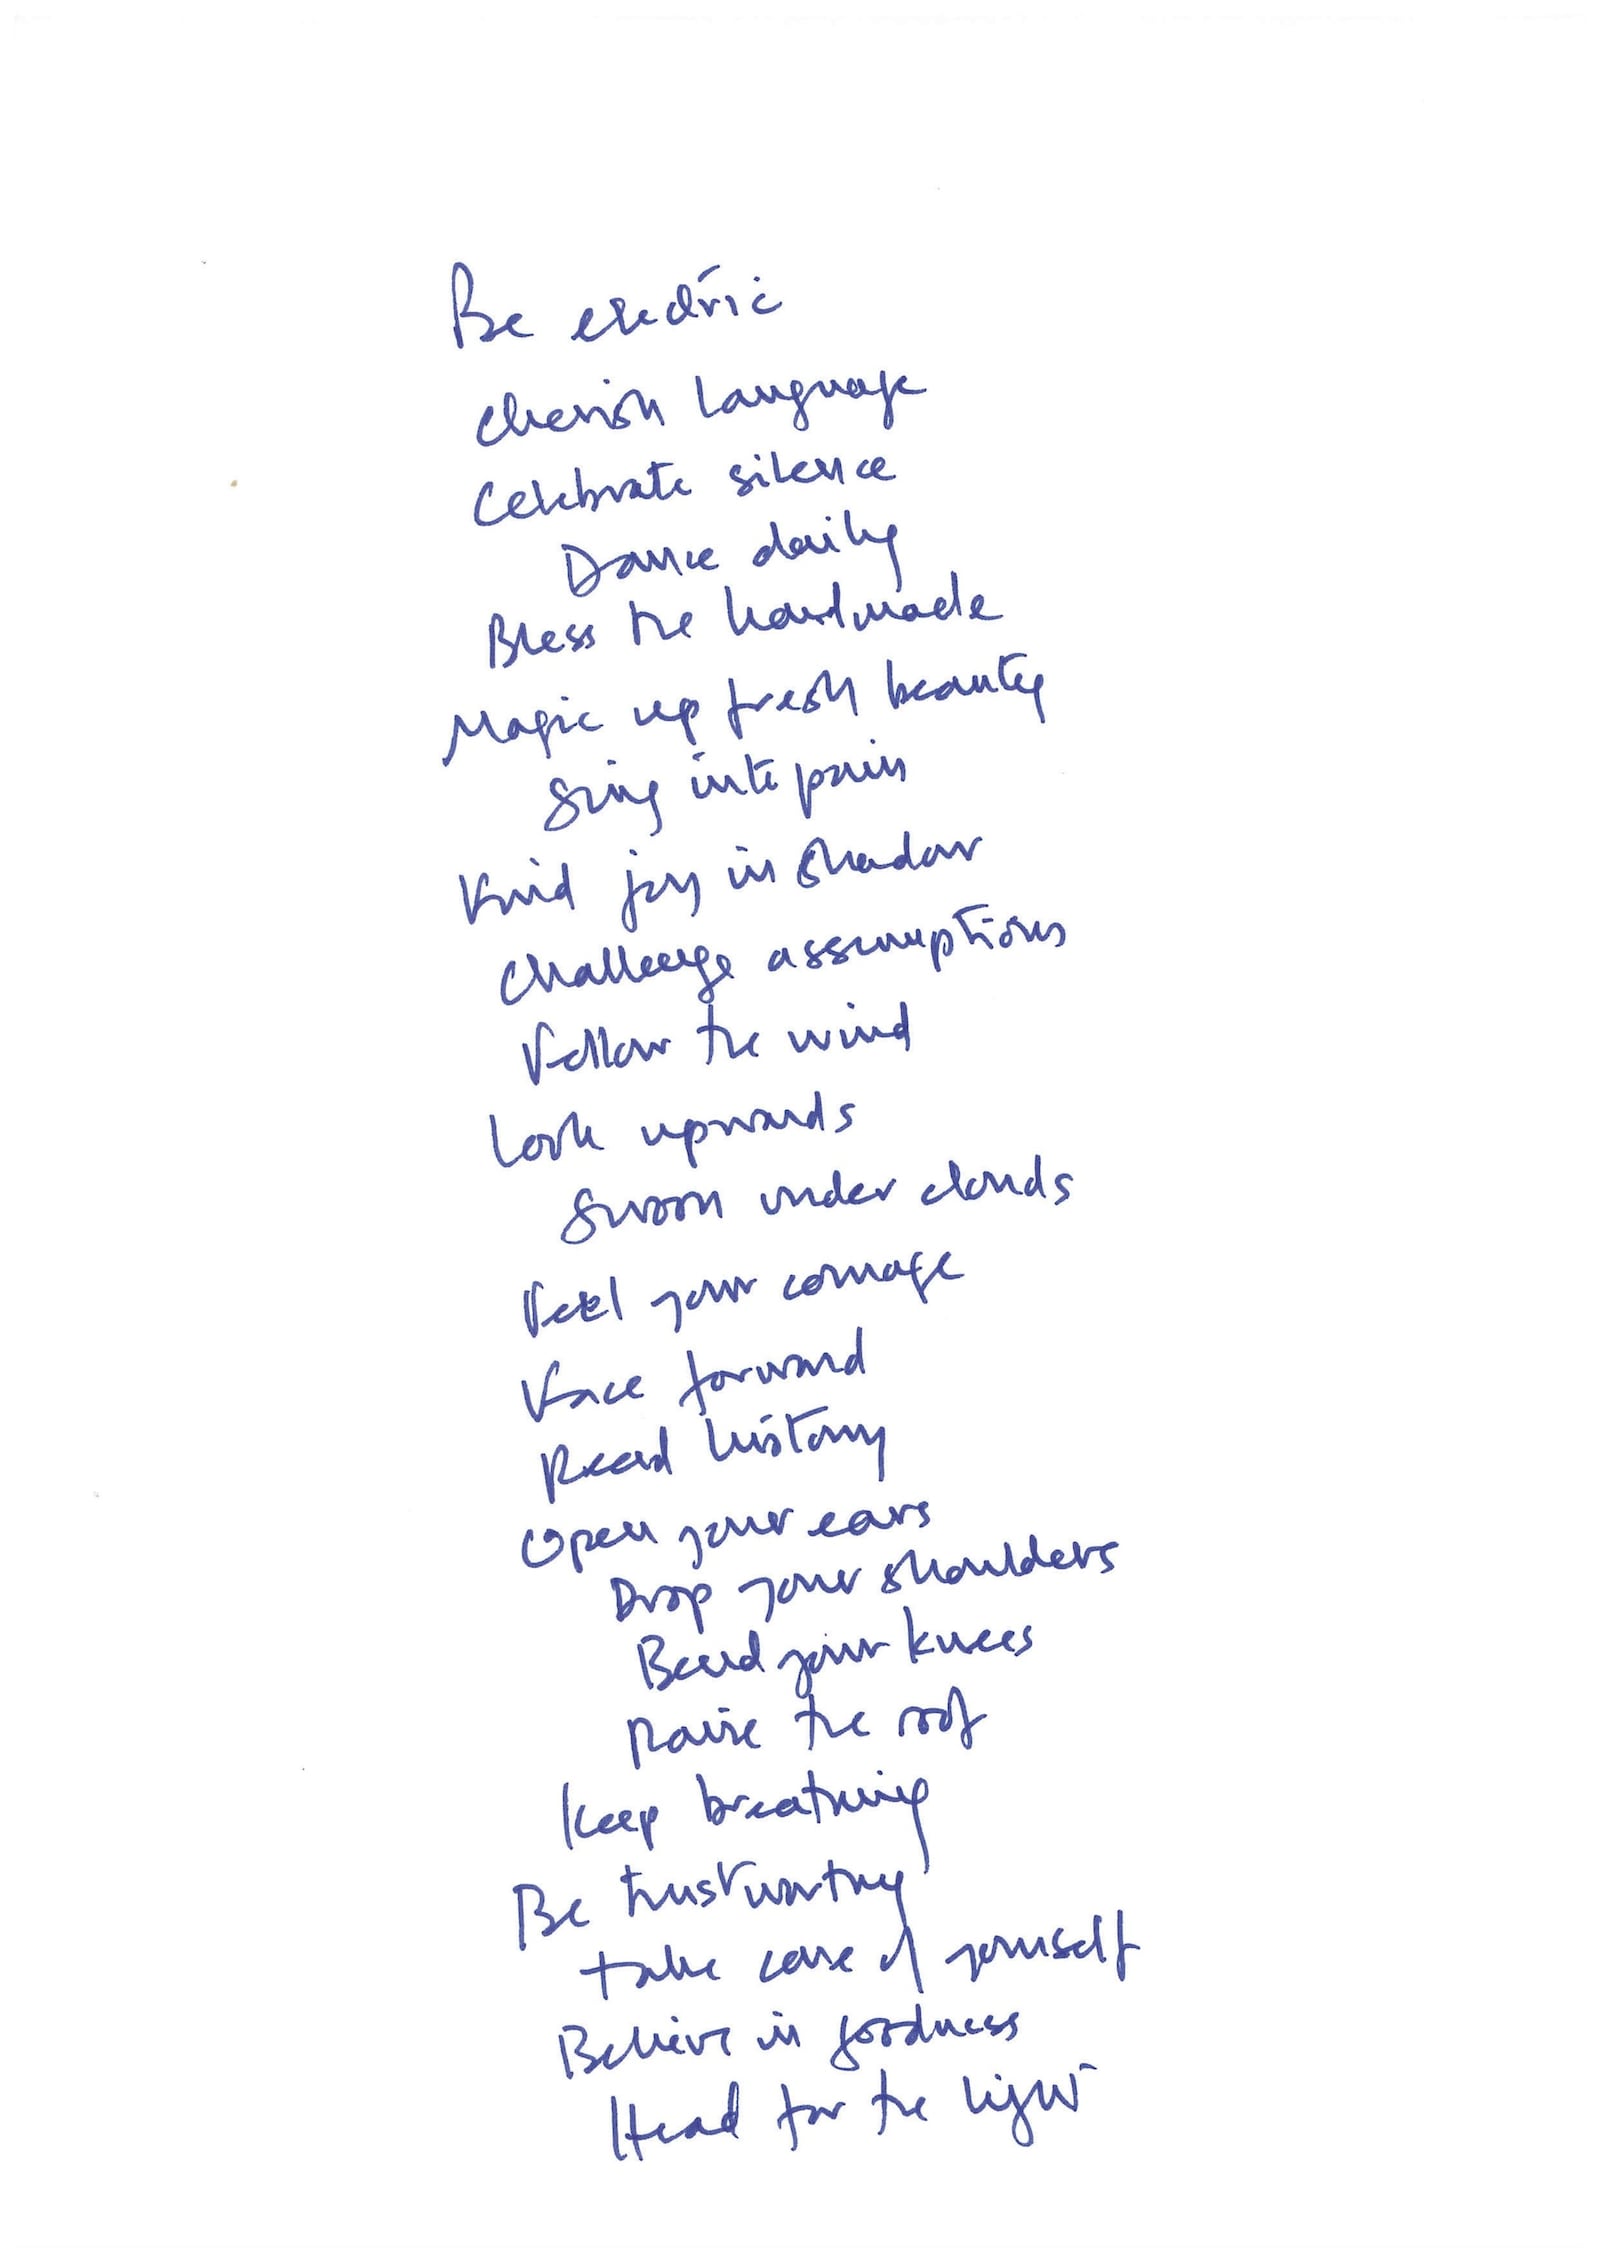 Be electric
Cherish language
Celebrate silence
Dance daily
Bless the handmade
Magic up fresh beauty
Sing into pain
Find joy in shadow
Challenge assumptions
Follow the wind
Look upwards
Swoon under clouds
Feel your courage
Face forward
Read history
Open your ears
Drop your shoulders
Bend your knees
Raise the roof
Keep breathing
Be trustworthy
Take care of yourself
Believe in goodness
Head for the light